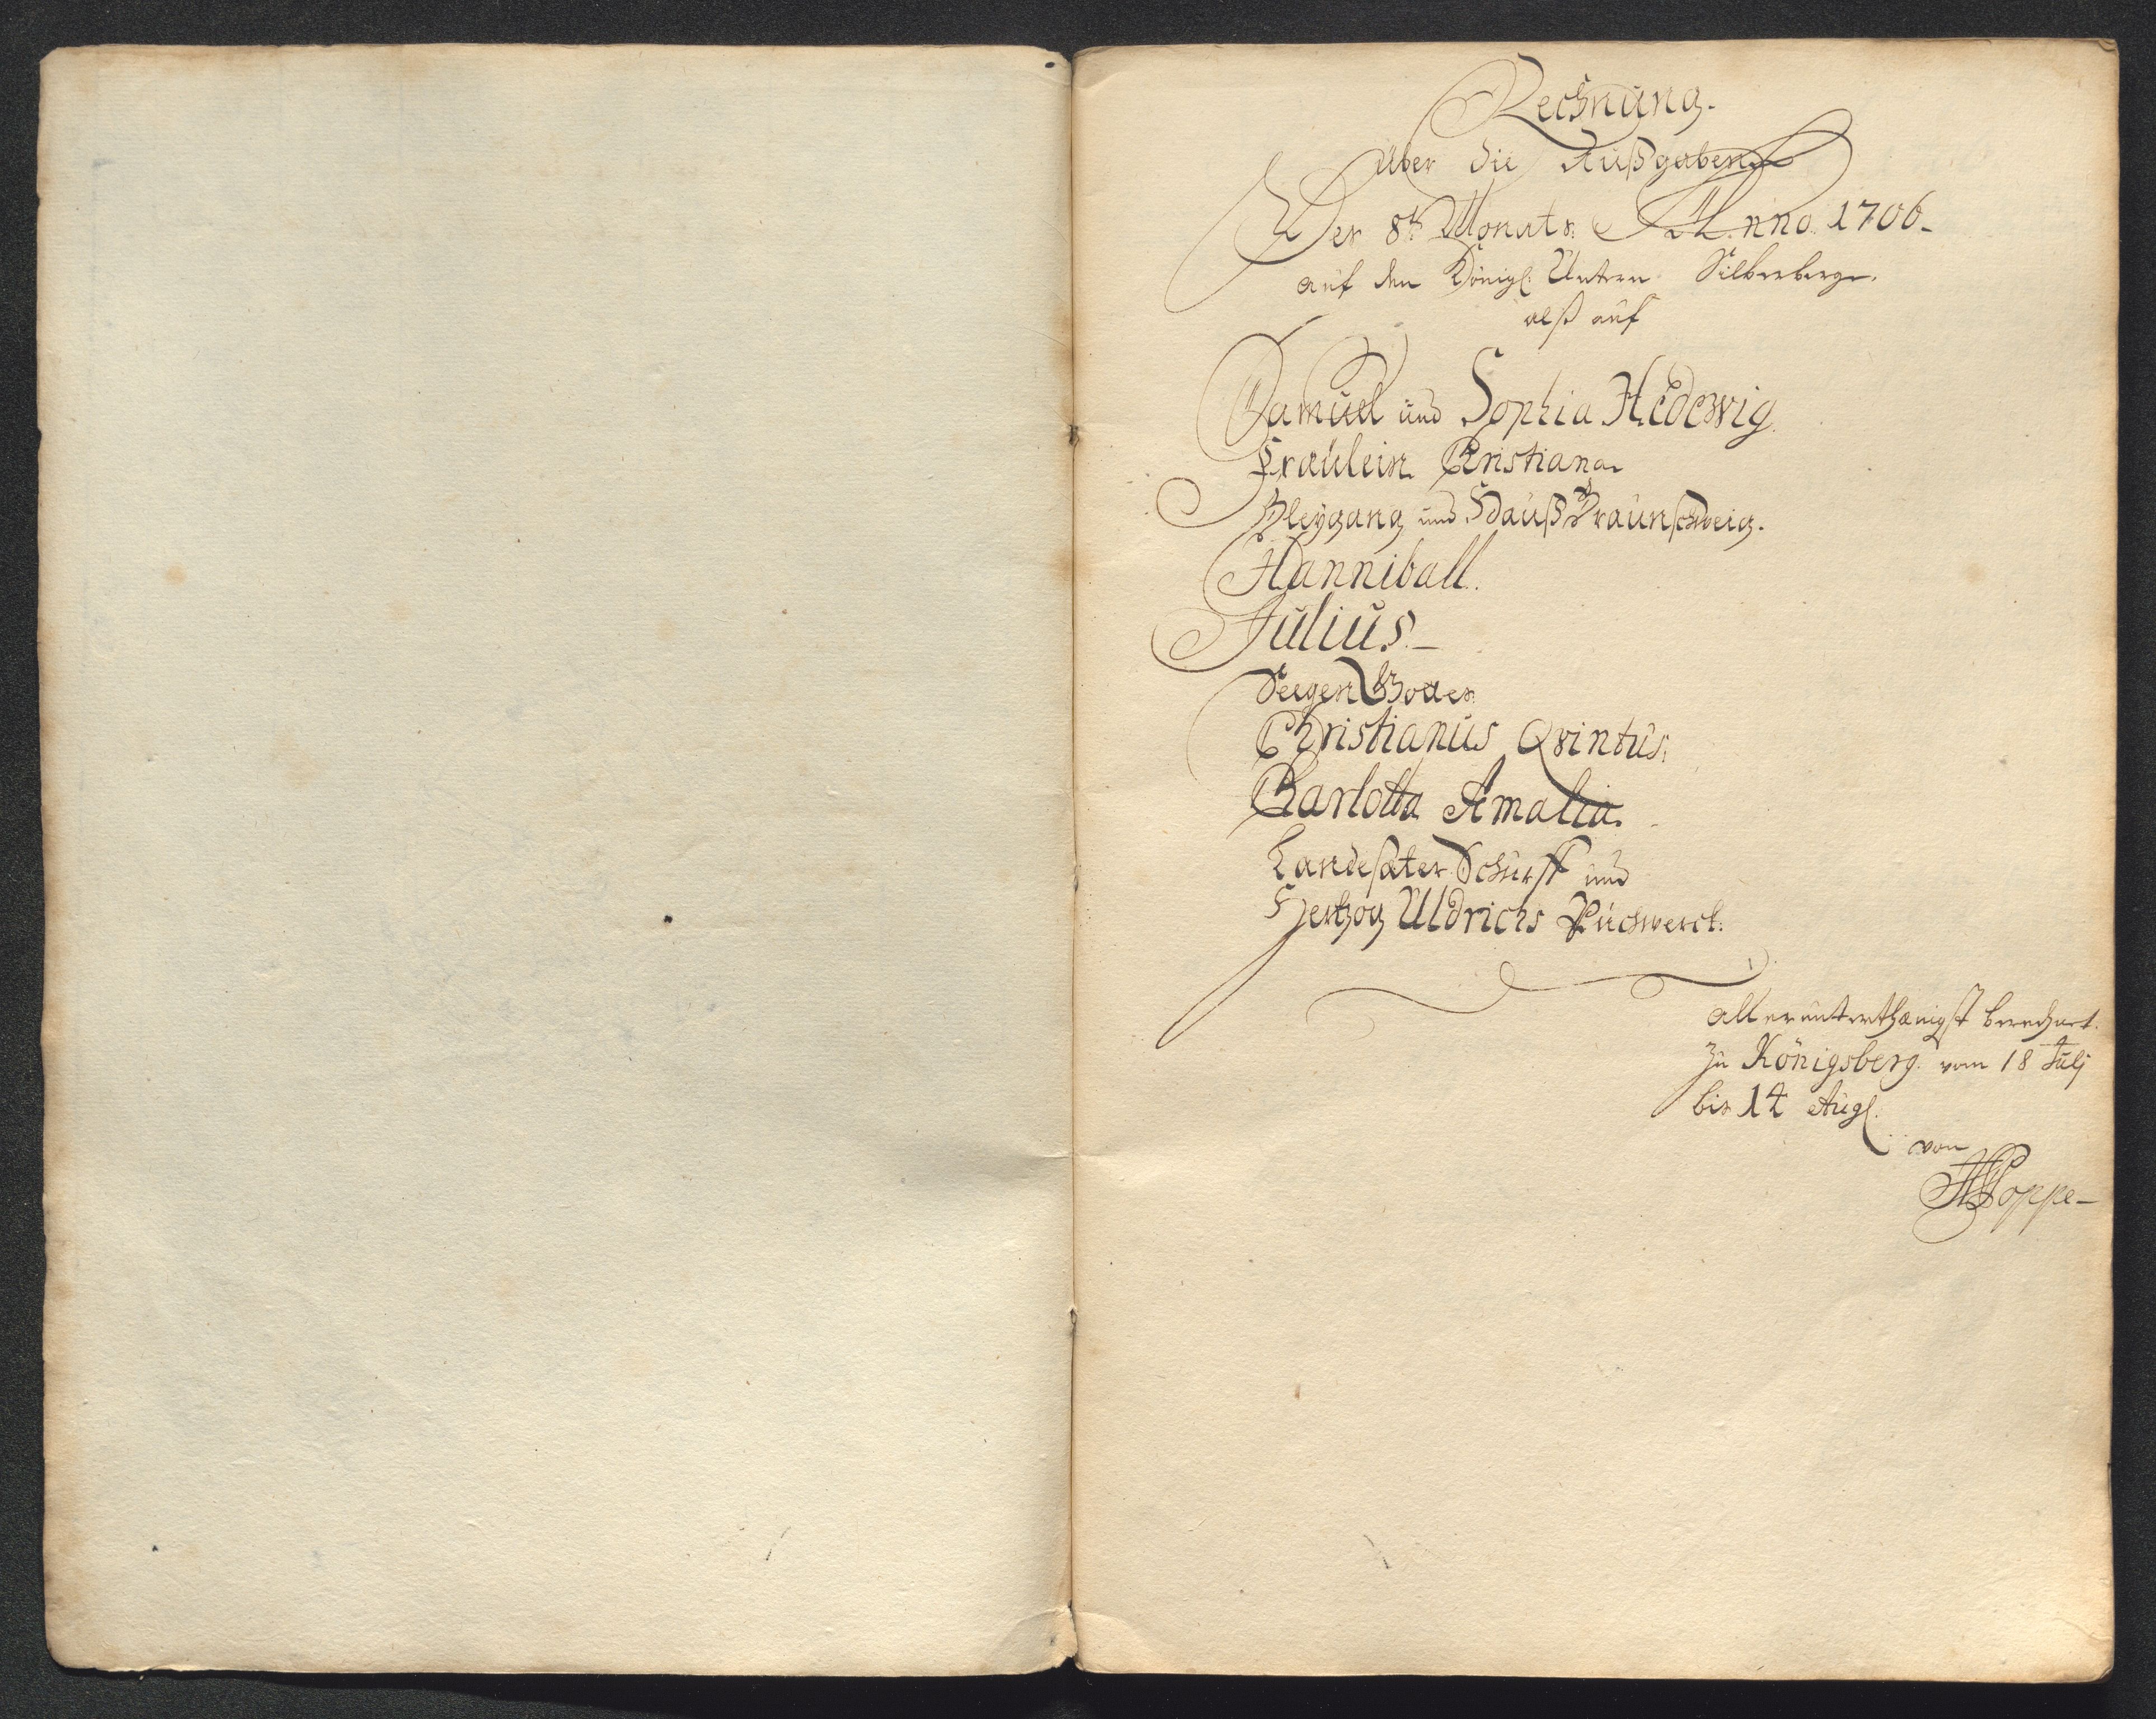 Rechnung.
Über die Außgaben
Der 8t Monats Anno. 1706.
auf den Königl: Untern Silberberge.
alß auf
Samuel und Sophia Hedewig.
Fraülein Christiana
Bleÿgang und Hauß Braunschweig.
Hanniball.
Julius.
Seegen Gottes
Christianus Qvintus.
Charlotta Amalia.
Landesvater Schurff und
Hertzog Uldrichs Puchwerck.
Allerunterthænigst berechnet.
zu Königsberg. vom 18 Julj
bis 14 Augl.
von
Poppe